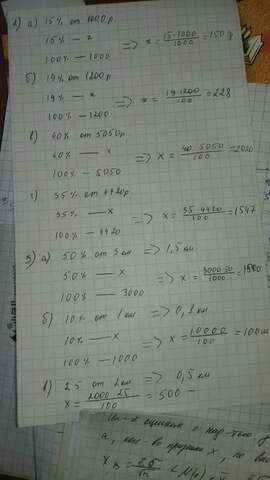 2) а) 15% от 1000р
15% — x
100% — 1000
=> x = 15·1000/1000 = 150р
б) 19% от 1200р
19% — x
100% — 1200
=> x = 19·1200/100 = 228
в) 40% от 5050р
40% — x
100% — 5050
=> x = 40·5050/100 = 2020
г) 35% от 4420р
35% — x
100% — 4420
=> x = 35·4420/100 = 1547
3) а) 50% от 3км => 1,5 км
50% — x
100% — 3000
=> x = 3000·50/100 = 1500
б) 10% от 1км => 0,1 км
10% — x
100% — 1000
=> x = 10000/100 = 100м
в) 25 от 2км => 0,5 км
x = 2000·25/100 = 500